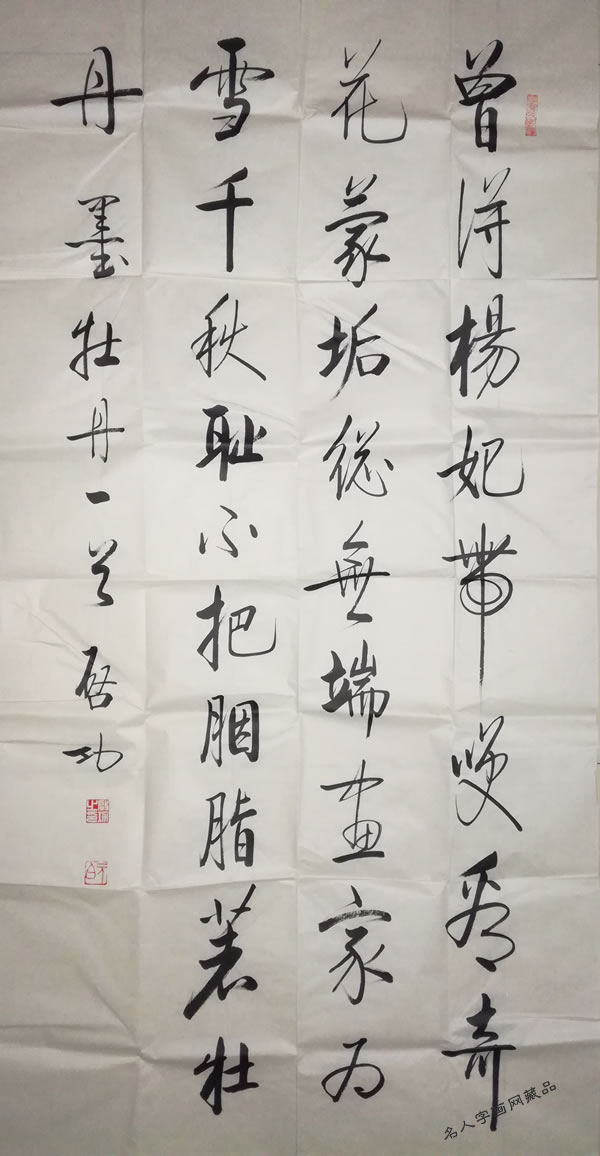 曾得楊妃帶笑看奇
花蒙垢總無端畫家为
雪千秋耻不把胭脂著牡
丹 墨牡丹一首 啓功
名人字画网藏品